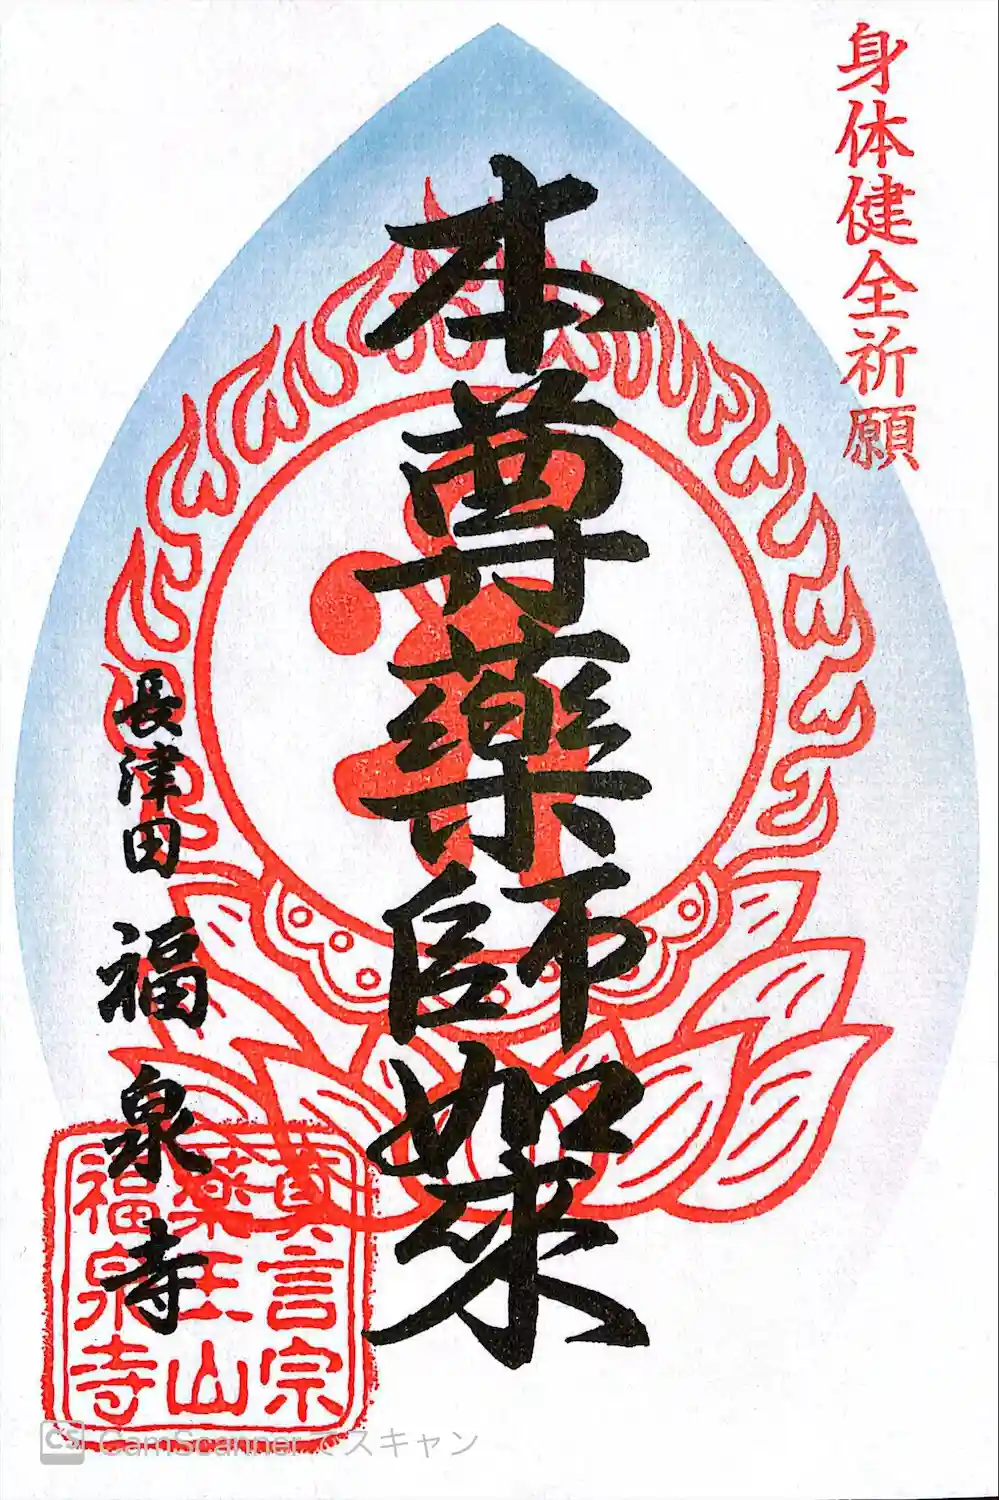 身体健全祈願
本尊薬師如来
長津田
福泉寺
真言宗
薬王山
福泉寺
CS CamScanner でスキャン